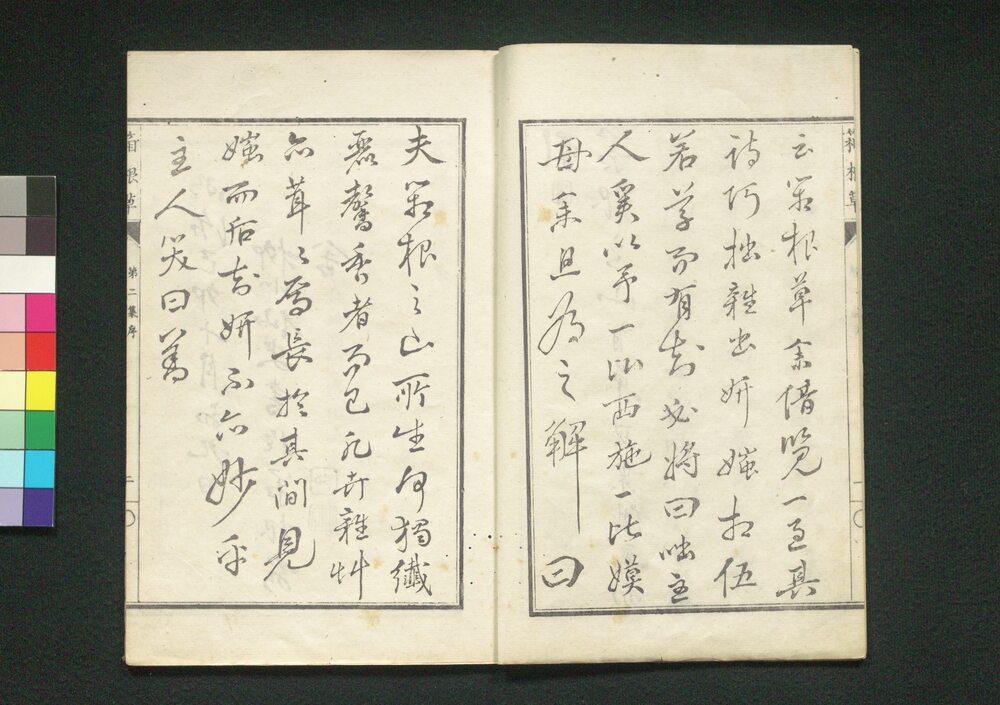 箱根草
一
云箱根草余借覧一過其
詩巧拙雜出妍媸相伍
若草而有知必將曰咄主
人奚以予一比西施一比嫫
母余且爲之解曰
夫箱根之山所生何獨纖
麗馨香者而已凡卉雜艸
亦茸々焉長於其間見
媸而后知妍不亦妙乎
主人笑曰善
箱根草
第二集序
二